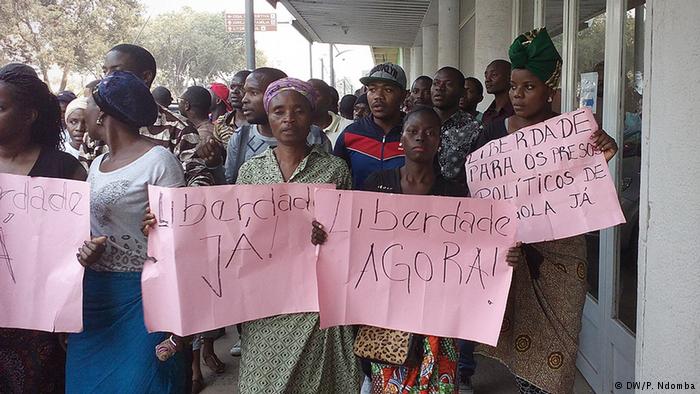 erdade
Á
Liberdade
JÁ!
Liberdade
AGORA!
LIBERDADE
PARA OS PRESOS
POLÍTICOS DE
OLA JÁ
© DW/P. Ndomba